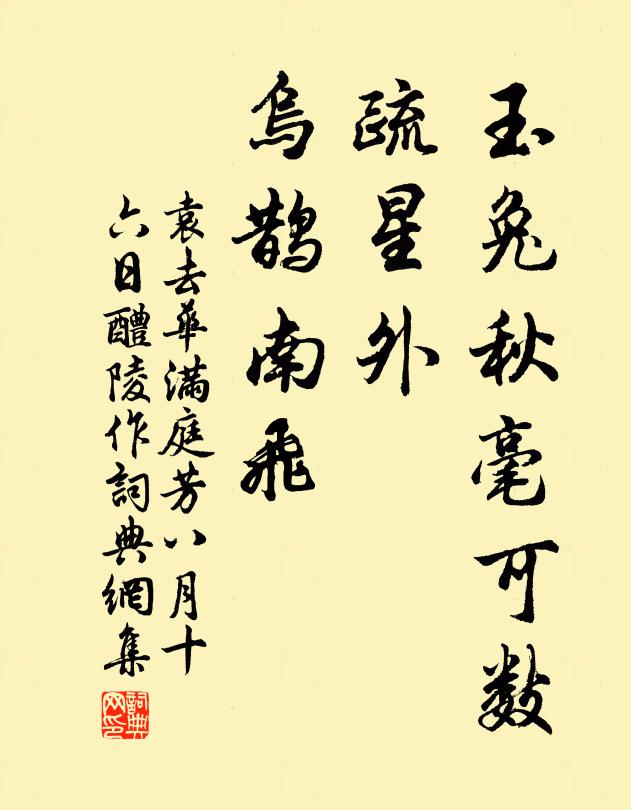 玉兔秋毫可數
疏星外
烏鵲南飛
袁去華滿庭芳八月十
六日醴陵作詞典網集
詞典
网印